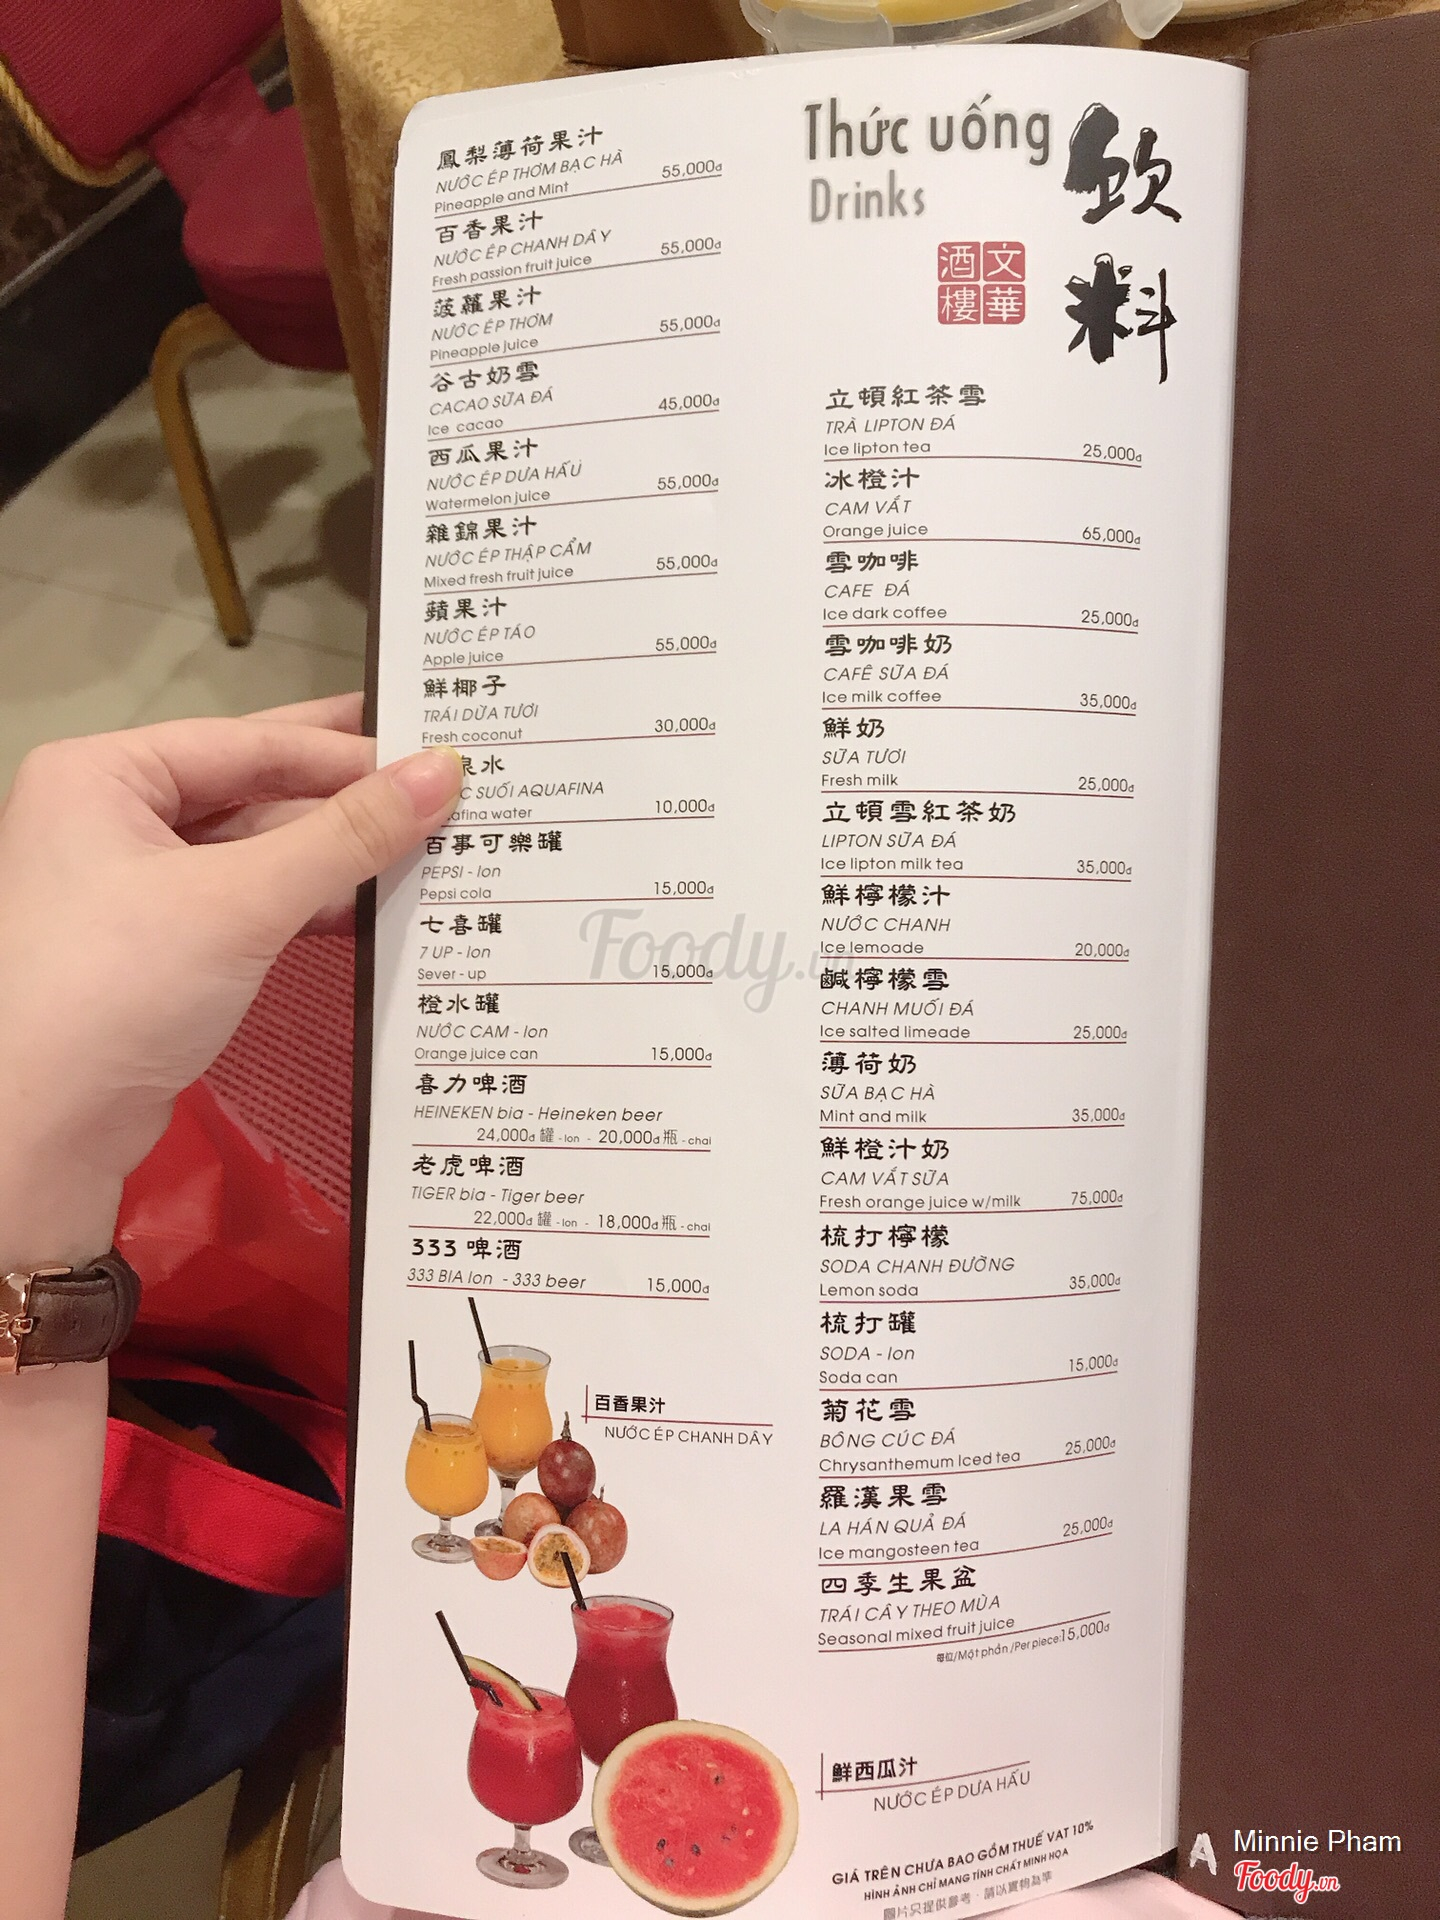 Thức uống
Drinks
飲料
文華
酒樓
鳳梨薄荷果汁
NƯỚC ÉP THƠM BẠC HÀ
Pineapple and Mint 55,000đ
百香果汁
NƯỚC ÉP CHANH DÂY
Fresh passion fruit juice 55,000đ
菠蘿果汁
NƯỚC ÉP THƠM
Pineapple juice 55,000đ
谷古奶雪
CACAO SỮA ĐÁ
Ice cacao 45,000đ
西瓜果汁
NƯỚC ÉP DƯA HẤU
Watermelon juice 55,000đ
雜錦果汁
NƯỚC ÉP THẬP CẨM
Mixed fresh fruit juice 55,000đ
蘋果汁
NƯỚC ÉP TÁO
Apple juice 55,000đ
鮮椰子
TRÁI DỪA TƯƠI
Fresh coconut 30,000đ
泉水
C SUỐI AQUAFINA
afina water 10,000đ
百事可樂罐
PEPSI - lon
Pepsi cola 15,000đ
七喜罐
7 UP - lon
Sever - up 15,000đ
橙水罐
NƯỚC CAM - lon
Orange juice can 15,000đ
喜力啤酒
HEINEKEN bia - Heineken beer
24,000đ 罐 - lon - 20,000đ 瓶 - chai
老虎啤酒
TIGER bia - Tiger beer
22,000đ 罐 - lon - 18,000đ 瓶 - chai
333 啤酒
333 BIA lon - 333 beer 15,000đ
百香果汁
NƯỚC ÉP CHANH DÂY
立頓紅茶雪
TRÀ LIPTON ĐÁ
Ice lipton tea 25,000đ
冰橙汁
CAM VẮT
Orange juice 65,000đ
雪咖啡
CAFE ĐÁ
Ice dark coffee 25,000đ
雪咖啡奶
CAFÊ SỮA ĐÁ
Ice milk coffee 35,000đ
鮮奶
SỮA TƯƠI
Fresh milk 25,000đ
立頓雪紅茶奶
LIPTON SỮA ĐÁ
Ice lipton milk tea 35,000đ
鮮檸檬汁
NƯỚC CHANH
Ice lemoade 20,000đ
鹹檸檬雪
CHANH MUỐI ĐÁ
Ice salted limeade 25,000đ
薄荷奶
SỮA BẠC HÀ
Mint and milk 35,000đ
鮮橙汁奶
CAM VẮT SỮA
Fresh orange juice w/milk 75,000đ
梳打檸檬
SODA CHANH ĐƯỜNG
Lemon soda 35,000đ
梳打罐
SODA - lon
Soda can 15,000đ
菊花雪
BÔNG CÚC ĐÁ
Chrysanthemum Iced tea 25,000đ
羅漢果雪
LA HÁN QUẢ ĐÁ
Ice mangosteen tea 25,000đ
四季生果盆
TRÁI CÂY THEO MÙA
Seasonal mixed fruit juice
每位/Một phần /Per piece:15,000đ
鮮西瓜汁
NƯỚC ÉP DƯA HẤU
GIÁ TRÊN CHƯA BAO GỒM THUẾ VAT 10%
HÌNH ẢNH CHỈ MANG TÍNH CHẤT MINH HỌA
圖片只提供參考，請以實物為準
Foody.vn
Minnie Pham
Foody.vn